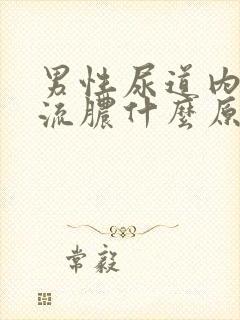 男性尿道内
流膿什麼原
常毅